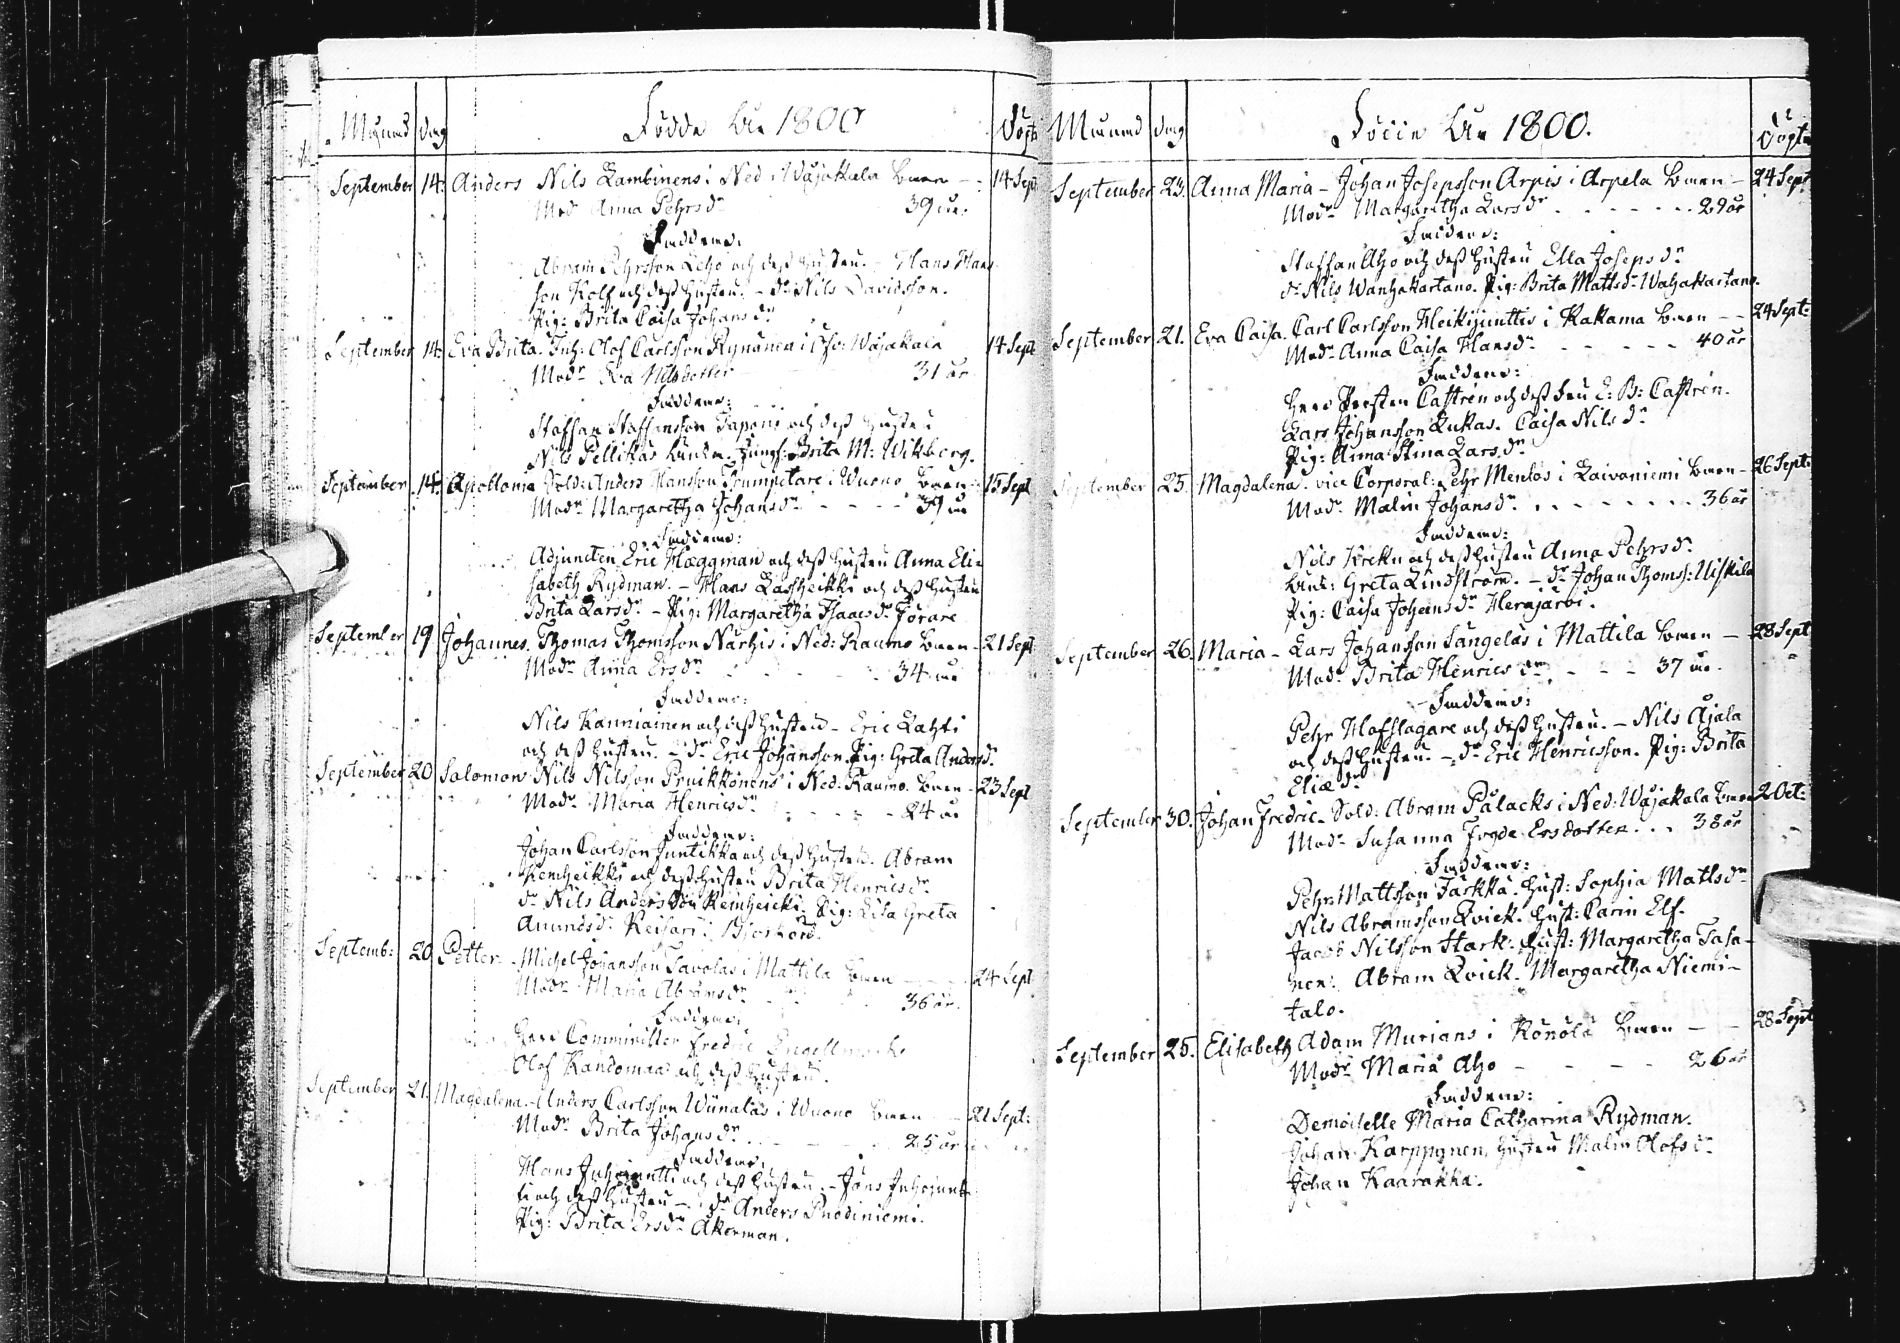 Månad dag Födde År 1800 Döpte
September 14. Anders Nils Lambinens i Ned: Wäjakala barn - 14 Sept
Modr Anna Pehrsdr 39 år.
Faddrar:
Abram Pehrsson Leho och dess hustru. - Hans Hans
son Kolf och dess hustru. - dr Nils Davidsson.
Pig: Brita Caisa Johansdr
September 14. Eva Brita. Inh: Olof Carlsson Rynänen i Öfv: Wäjakala 14 Sept
Modr Eva Nilsdotter 31 år
Faddrar:
Staffan Staffansson Taponis och dess hustru
Nils Pellikas. Jungf: Brita M: Wikberg.
September 14. Apollonia Sold: Anders Hansson Trumpetare i Wuono barn 15 Sept
Modr Margaretha Johansdr - - - - 39 år
Faddrar:
Adjuncten Eric Hæggman och dess hustru Anna Eli-
sabeth Rydman. - Hans Lassheikki och dess hustru
Brita Larsdr - Pig: Margaretha Isaacsdr Förare
September 19 Johannes. Thomas Thomsson Närhis i Ned: Raumo barn - 21 Sept
Modr Anna Ersdr - - - - 34 år
Faddrar:
Nils Kanniainen och dess hustru - Eric Lahti
och dess hustru. - dr Eric Johansson. Pig: Greta Andersdr
September 20 Salomon Nils Nilsson Pruikkonens i Ned: Raumo. barn - 23 Sept
Modr Maria Henricsdr - - - - 24 år
Faddrar:
Johan Carlsson Juntikka och dess hustru. Abram
Kemheikki och dess hustru Brita Henricsdr
dr Nils Andersson Kemheicki. Pig: Lisa Greta
Amundsdr Keisari i Björkön.
Septemb: 20 Petter. Michel Johansson Tavolas i Mattila barn - 24 Sept
Modr Maria Abramsdr 36 år.
Faddrar:
Herr Comminister Fredric Engelmarck.
Olof Kandomaa och dess hustru.
September 21. Magdalena. - Anders Carlsson Wiinaläs i Wuono barn - 21 Sept:
Modr Brita Johansdr - - - - 25 år
Faddrar:
Hans Juhojuntti och dess hustru. - Jöns Juhojunt-
ti och dess hustru - dr Anders Puodiniemi.
Pig: Brita Ersdr Åkerman.
Månad dag Födde År 1800. Döpte
September 23. Anna Maria - Johan Josepsson Arpis i Arpela barn - 24 Sept
Modr Margaretha Larsdr - - - - - - 29 år
Faddrar:
Staffan Aho och dess hustru Ella Josepsdr
dr Nils Wanhakartano. Pig: Brita Mattsdr Wahakartano.
September 21. Eva Caisa. Carl Carlsson Heikijunttis i Kakama barn - - 24 Sept:
Modr Anna Caisa Hansdr - - - - - 40 år
Faddrar:
Herr Prosten Castrén och dess Fru E: B: Castrén.
Lars Johansson Lukas. Caisa Nilsdr
Pig: Anna Stina Larsdr
September 25. Magdalena. vice Corporal: Pehr Menlös i Laivaniemi barn - 26 Sept:
Modr Malin Johansdr - - - - - - - 36 år
Faddrar:
Nils Krekn och dess hustru Anna Pehrsdr
Greta Lindström. - dr Johan Thomss: Uiskila
Pig: Caisa Johansdr Herajärvi.
September 26. Maria - Lars Johansson Sangeläs i Mattila barn - 28 Sept
Modr Brita Henricsdr - - - 37 år.
Faddrar:
Pehr Hofslagare och dess hustru. - Nils Ajala
och dess hustru. - dr Eric Henricsson. Pig: Brita
Eliædr
September 30. Johan Fredric - Sold: Abram Pålacks i Ned: Wäjakala barn 2 Oct:
Modr Susanna Frode Ersdotter - - - 38 år
Faddrar:
Pehr Mattsson Tarkka. Hust: Sophia Mattsdr
Nils Abramsson Qvick. Hust: Carin Elf.
Jacob Nilsson Stark. Hust: Margaretha Tasa-
nen. Abram Qvick. Margaretha Niemi-
talo.
September 25. Elisabeth Adam Murians i Könölä barn - - 28 Sept
Modr Maria Aho - - - - 26 år
Faddrar:
Demoiselle Maria Catharina Rydman.
Johan Karppynen, hustru Malin Olofsdr
Johan Kaarakka.